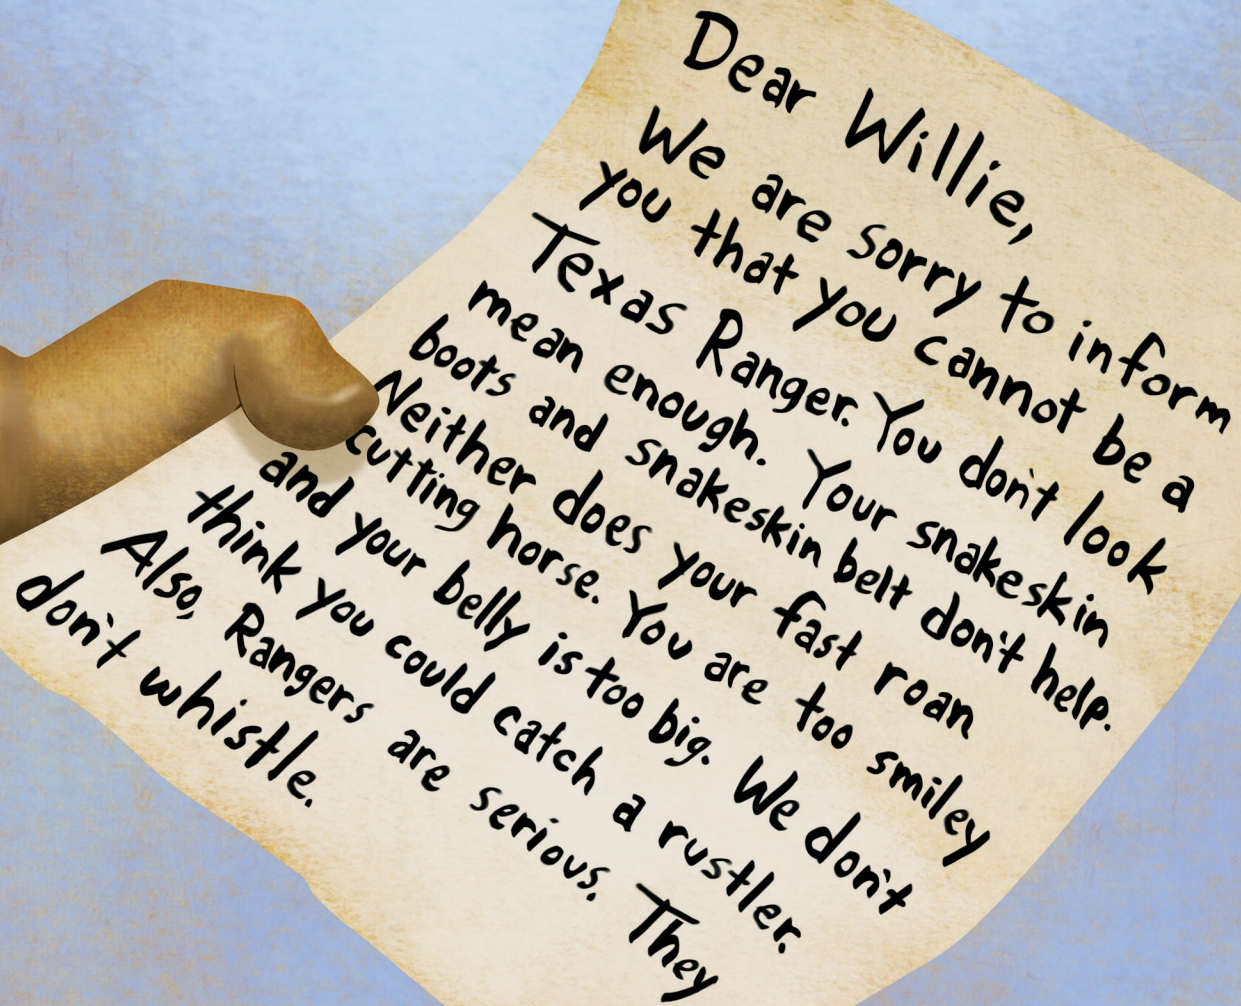 Dear Willie,
We are sorry to inform
you that you cannot be a
Texas Ranger. You don't look
mean enough. Your snakeskin
boots and snakeskin belt don't help.
Neither does your fast roan
cutting horse. You are too smiley
and your belly is too big. We don't
think you could catch a rustler.
Also, Rangers are serious. They
don't whistle.